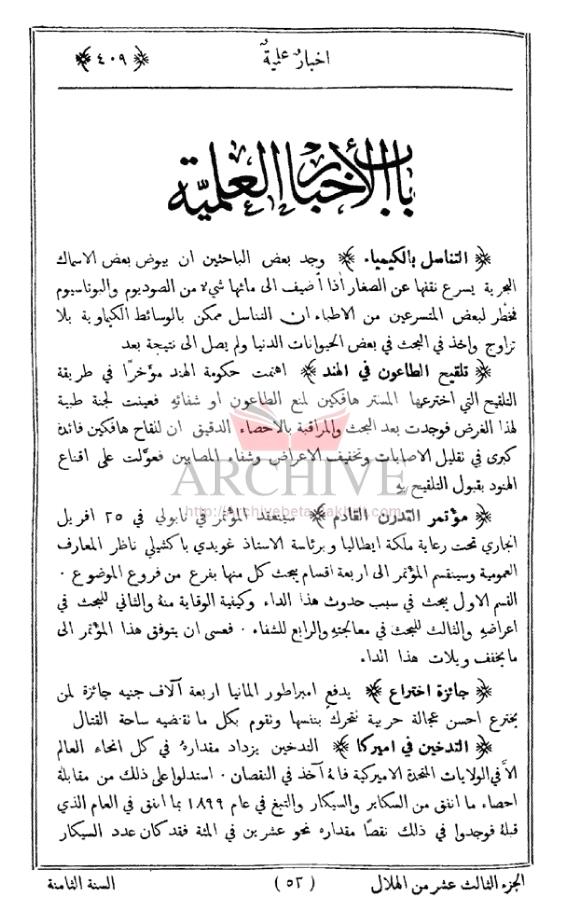 اخبار علمية
﴿ ٤٠٩ ﴾
باب الأخبار العلمية
﴿ التناسل بالكيمياء ﴾ وجد بعض الباحثين ان بيوض بعض الاسماك
البحرية يسرع نقفها عن الصغار اذا أضيف الى مائها شيء من الصوديوم والبوتاسيوم
فخطر لبعض المتسرعين من الاطباء ان التناسل ممكن بالوسائط الكيماوية بلا
تزاوج واخذ في البحث في بعض الحيوانات الدنيا ولم يصل الى نتيجة بعد
﴿ تلقيح الطاعون في الهند ﴾ اهتمت حكومة الهند مؤخرًا في طريقة
التلقيح التي اخترعها المستر هافكين لمنع الطاعون او شفائه فعينت لجنة طبية
لهذا الغرض فوجدت بعد البحث والمراقبة بالاحصاء الدقيق ان للقاح هافكين فائدة
كبرى في تقليل الاصابات وتخفيف الاعراض وشفاء المصابين فعوّلت على اقناع
الهنود بقبول التلقيح به
ARCHIVE
﴿ مؤتمر التدرن القادم ﴾ سينعقد المؤتمر في نابولي في ٢٥ افريل
الجاري تحت رعاية ملكة ايطاليا وبرئاسة الاستاذ غويدي باكشيلي ناظر المعارف
العمومية وسينقسم المؤتمر الى اربعة اقسام يبحث كل منها بفرع من فروع الموضوع ٠
القسم الاول يبحث في سبب حدوث هذا الداء وكيفية الوقاية منهُ والثاني للبحث في
اعراضهِ والثالث للبحث في معالجتهِ والرابع للشفاء ٠ فعسى ان يتوفق هذا المؤتمر الى
ما يخفف ويلات هذا الداء
﴿ جائزة اختراع ﴾ يدفع امبراطور المانيا اربعة آلاف جنيه جائزة لمن
يخترع احسن عجالة حربية تتحرك بنفسها وتقوم بكل ما تقتضيه ساحة القتال
﴿ التدخين في اميركا ﴾ التدخين يزداد مقدارهُ في كل انحاء العالم
الاَّ في الولايات المتحدة الاميركية فانهُ آخذ في النقصان ٠ استدلوا على ذلك من مقابلة
احصاء ما انفق من السكاير والسيكار والتبغ في عام ١٨٩٩ بما انفق في العام الذي
قبلهُ فوجدوا في ذلك نقصًا مقداره نحو عشرين في المئة فقد كان عدد السيكار
الجزء الثالث عشر من الهلال
( ٥٢ )
السنة الثامنة